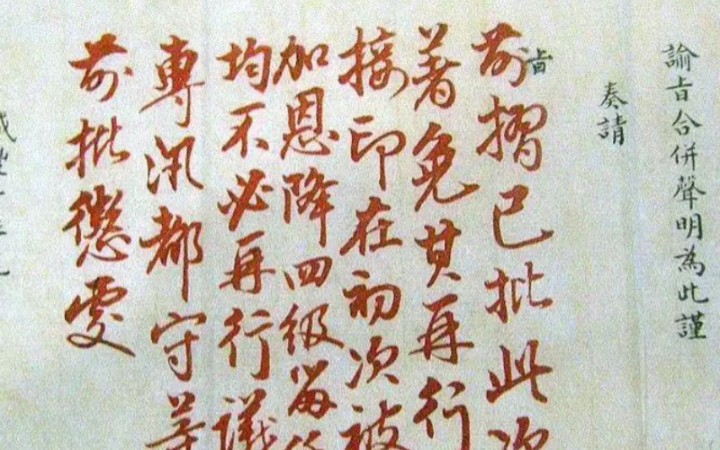 諭旨合併聲明為此謹
奏請
旨
前摺已批此次
著免其再行
接印在初次被
加恩降四級留任
均不必再行議
專汛都守等
前批懲處
咸豐